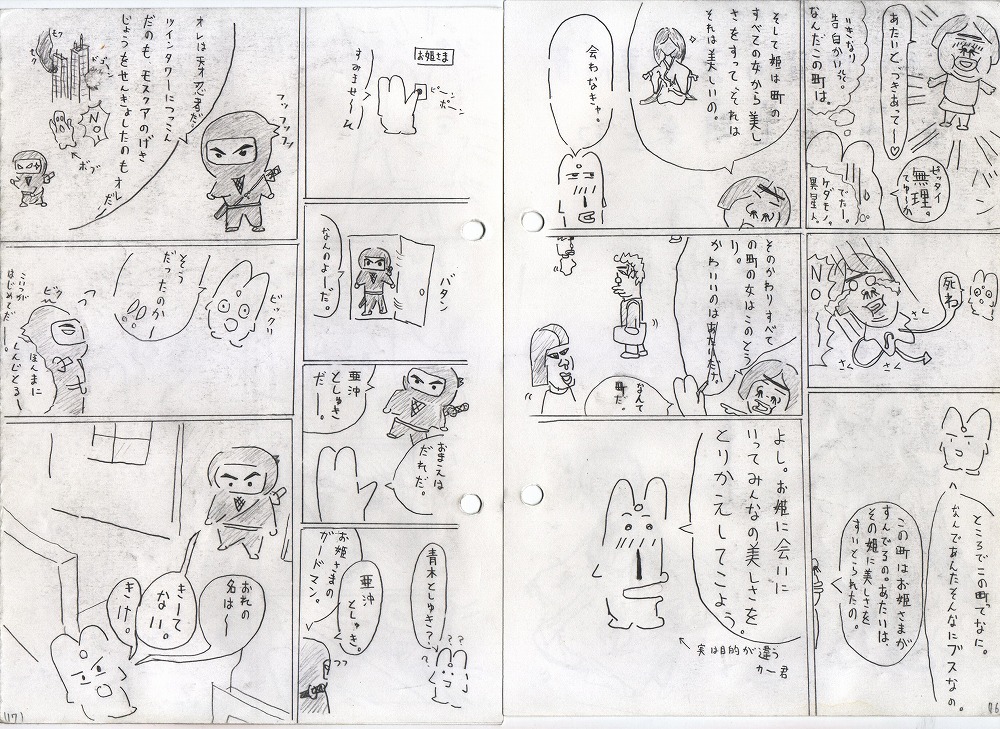 あたいと、づきあって〜♡
ゼッタイ
無理。
てゅーか
いきなり
告白かい※。
なんだこの町は。
でたー。
ケダモノ。
異星人。
死ね
NO
さく
さく
さく
ところでこの町ってなに。
なんであんたそんなにブスなの。
この町はお姫さまが
すんでるの。あたいは、
その姫に美しさを
すいとられたの。
そして姫は町の
すべての女から美し
さをすって、それは
それは美しいの。
会わなきゃ。
そのかわりすべて
の町の女はこのとう
り。
かわいいのはあたいだけ。
なんて
町だ。
よし。お姫に会いに
いってみんなの美しさを
とりかえしてこよう。
実は目的が違う
カー君
16
お姫さま
ピーン
ポーン
すみませーん
バタン
なんのよーだ。
亜沖
としゅき
だー。
おまえは
だれだ。
青木としゅき?
???
亜沖
としゅき。
お姫さまの
ガードマン。
フッフッフッ
オレは天才忍君だ
ツインタワーにつっこん
だのも、モスクアのげき
じょうをせんきょしたのもオレだ
モク
モク
ゴーン
NO
ボブ
ビックリ
そう
だったのかー
ビクッ
こいつが
はじめてだ。
ほんまに
しんじとるー
おれの
名は〜
きーて
ない。
きけ。
171